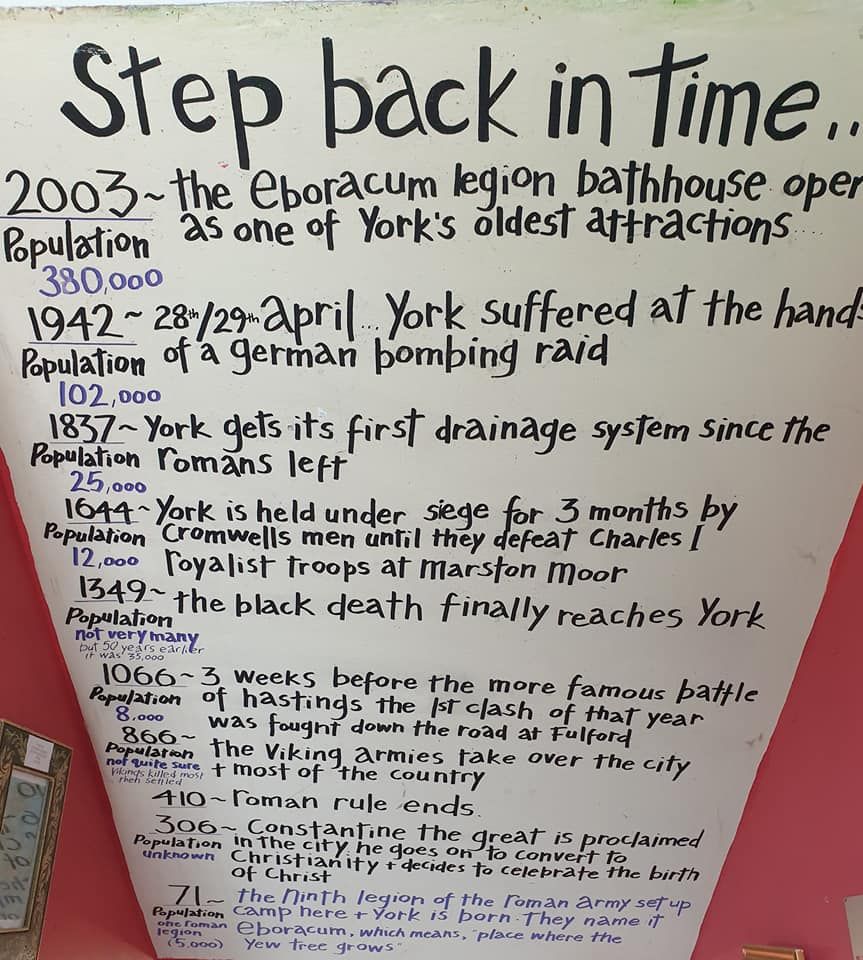 Step back in time..
2003~ the Eboracum legion bathhouse oper
Population as one of York's oldest attractions....
380,000
1942~ 28th/29th April... York suffered at the hands
Population of a german bombing raid
102,000
1837~ York gets its first drainage system since the
Population romans left
25,000
1644~ York is held under siege for 3 months by
Population Cromwells men until they defeat Charles I
12,000 royalist troops at Marston Moor
1349~ the black death finally reaches York
Population
not very many
but 50 years earlier
it was 35,000
1066~ 3 weeks before the more famous battle
Population of hastings the 1st clash of that year
8,000 was fought down the road at Fulford
866~ the Viking armies take over the city
Population
not quite sure + most of the country
Vikings killed most
then settled
410~ roman rule ends.
306~ Constantine the great is proclaimed
Population in the city. he goes on to convert to
unknown Christianity + decides to celebrate the birth
of Christ
71~ the Ninth legion of the roman army set up
Population camp here + York is born. They name it
one roman Eboracum, which means, "place where the
legion
(5,000) yew tree grows"